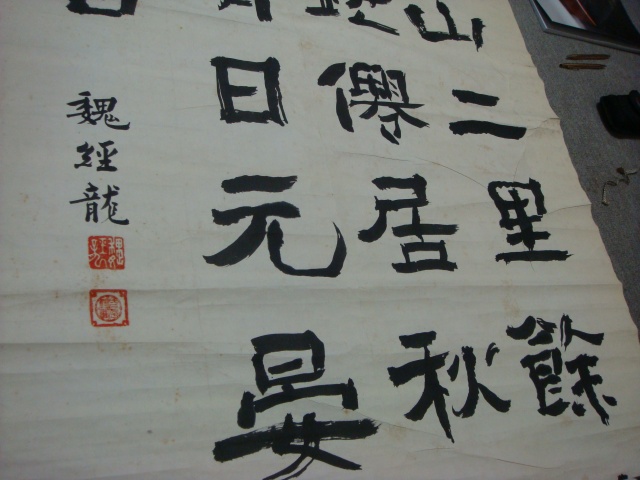 山二里餘
僊居秋
日元晏
魏經龍